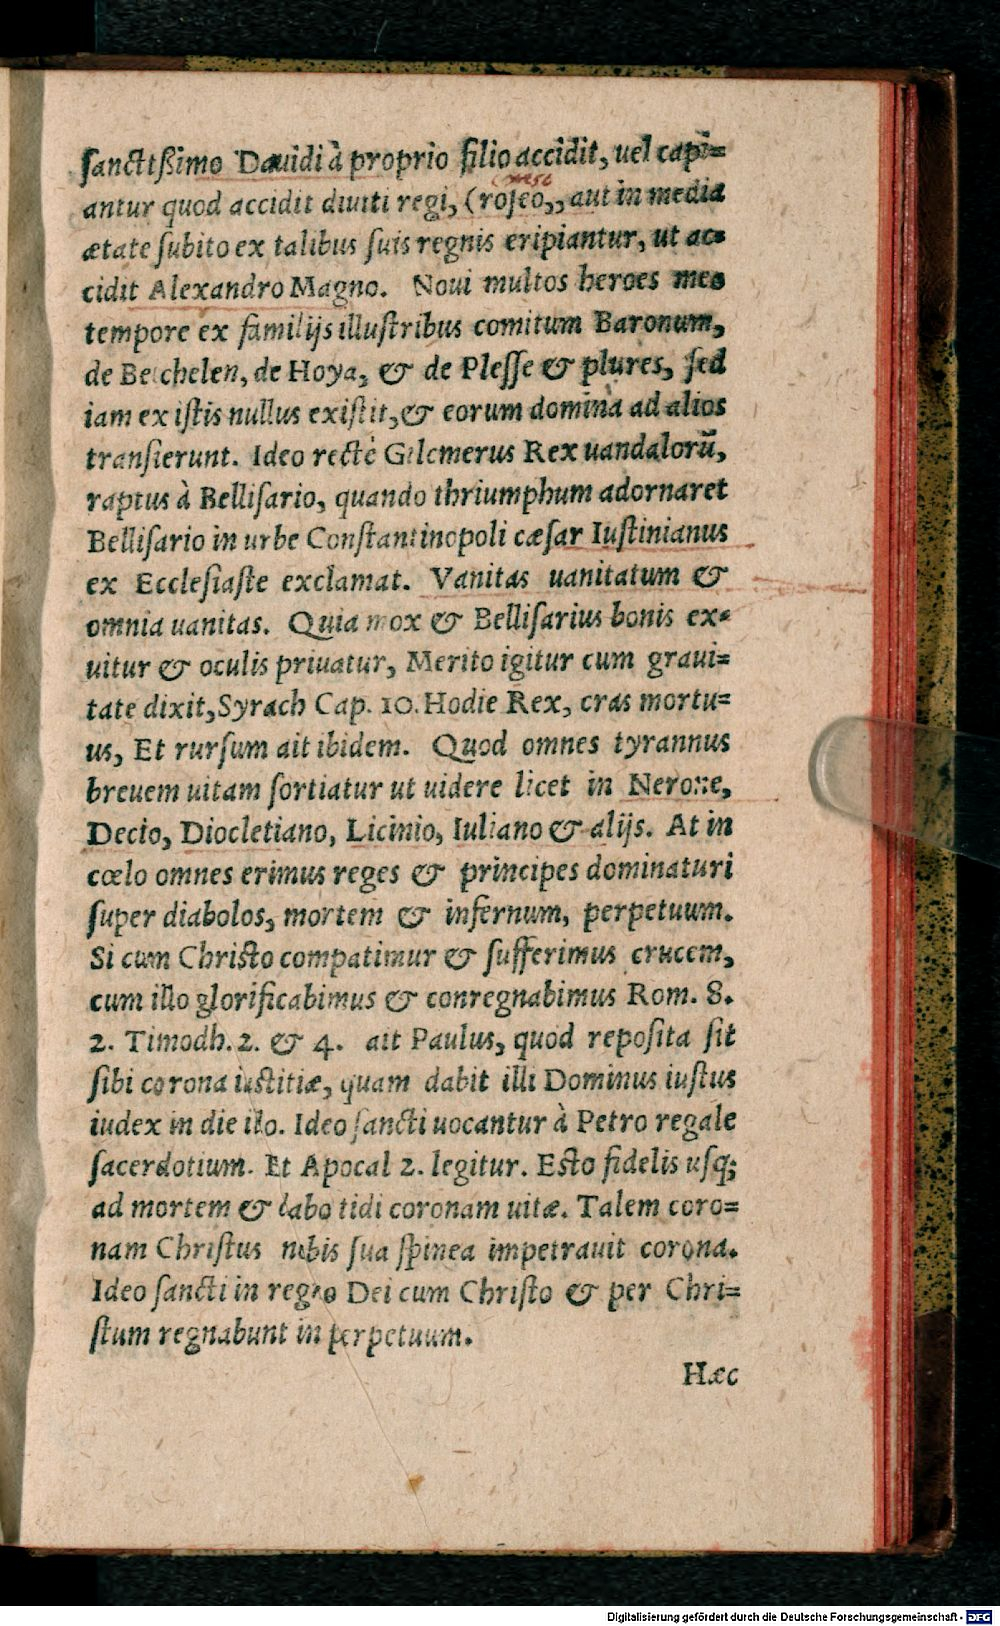 sanctißimo Dauidi à proprio filio accidit, uel capi=
antur quod accidit diuiti regi, (roseo,, aut in media
ætate subito ex talibus suis regnis eripiantur, ut ac=
cidit Alexandro Magno. Noui multos heroes meo
tempore ex familijs illustribus comitum Baronum,
de Bexchelen, de Hoya, & de Plesse & plures, sed
iam ex istis nullus existit, & eorum domina ad alios
transierunt. Ideo rectè Gilemerus Rex uandalorũ,
raptus à Bellisario, quando thriumphum adornaret
Bellisario in urbe Constantinopoli cæsar Iustinianus
ex Ecclesiaste exclamat. Vanitas uanitatum &
omnia uanitas. Quia mox & Bellisarius bonis ex=
uitur & oculis priuatur, Merito igitur cum graui=
tate dixit, Syrach Cap. 10. Hodie Rex, cras mortu=
us, Et rursum ait ibidem. Quod omnes tyrannus
breuem uitam sortiatur ut uidere licet in Nerone,
Decio, Diocletiano, Licinio, Iuliano & alijs. At in
cœlo omnes erimus reges & principes dominaturi
super diabolos, mortem & infernum, perpetuum.
Si cum Christo compatimur & sufferimus crucem,
cum illo glorificabimus & conregnabimus Rom. 8.
2. Timodh. 2. & 4. ait Paulus, quod reposita sit
sibi corona iustitiæ, quam dabit illi Dominus iustus
iudex in die illo. Ideo sancti uocantur à Petro regale
sacerdotium. Et Apocal 2. legitur. Esto fidelis usq;
ad mortem & dabo tidi coronam uitæ. Talem coro=
nam Christus nobis sua spinea impetrauit corona.
Ideo sancti in regno Dei cum Christo & per Chri=
stum regnabunt in perpetuum.
Hæc
Digitalisierung gefördert durch die Deutsche Forschungsgemeinschaft - DFG